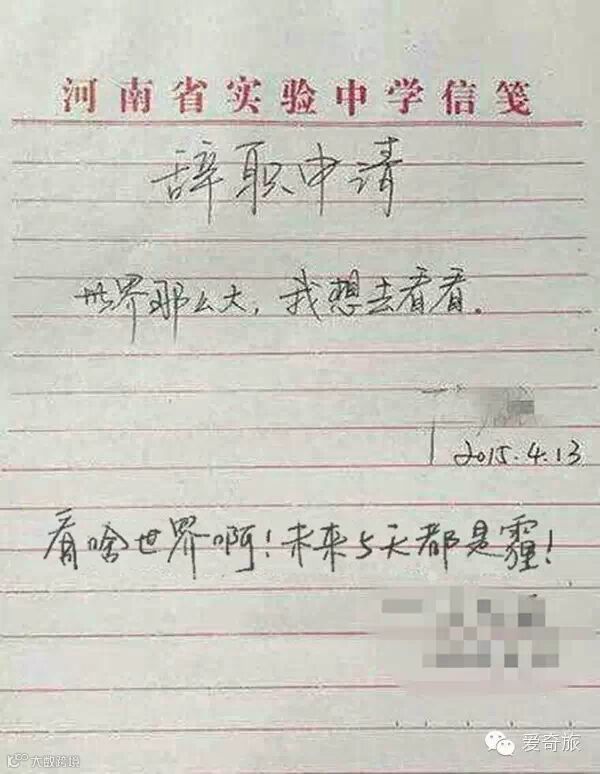 河南省实验中学信笺
辞职申请
世界那么大，我想去看看。
2015.4.13
看啥世界啊！未来5天都是霾！
爱奇旅
大数跨境